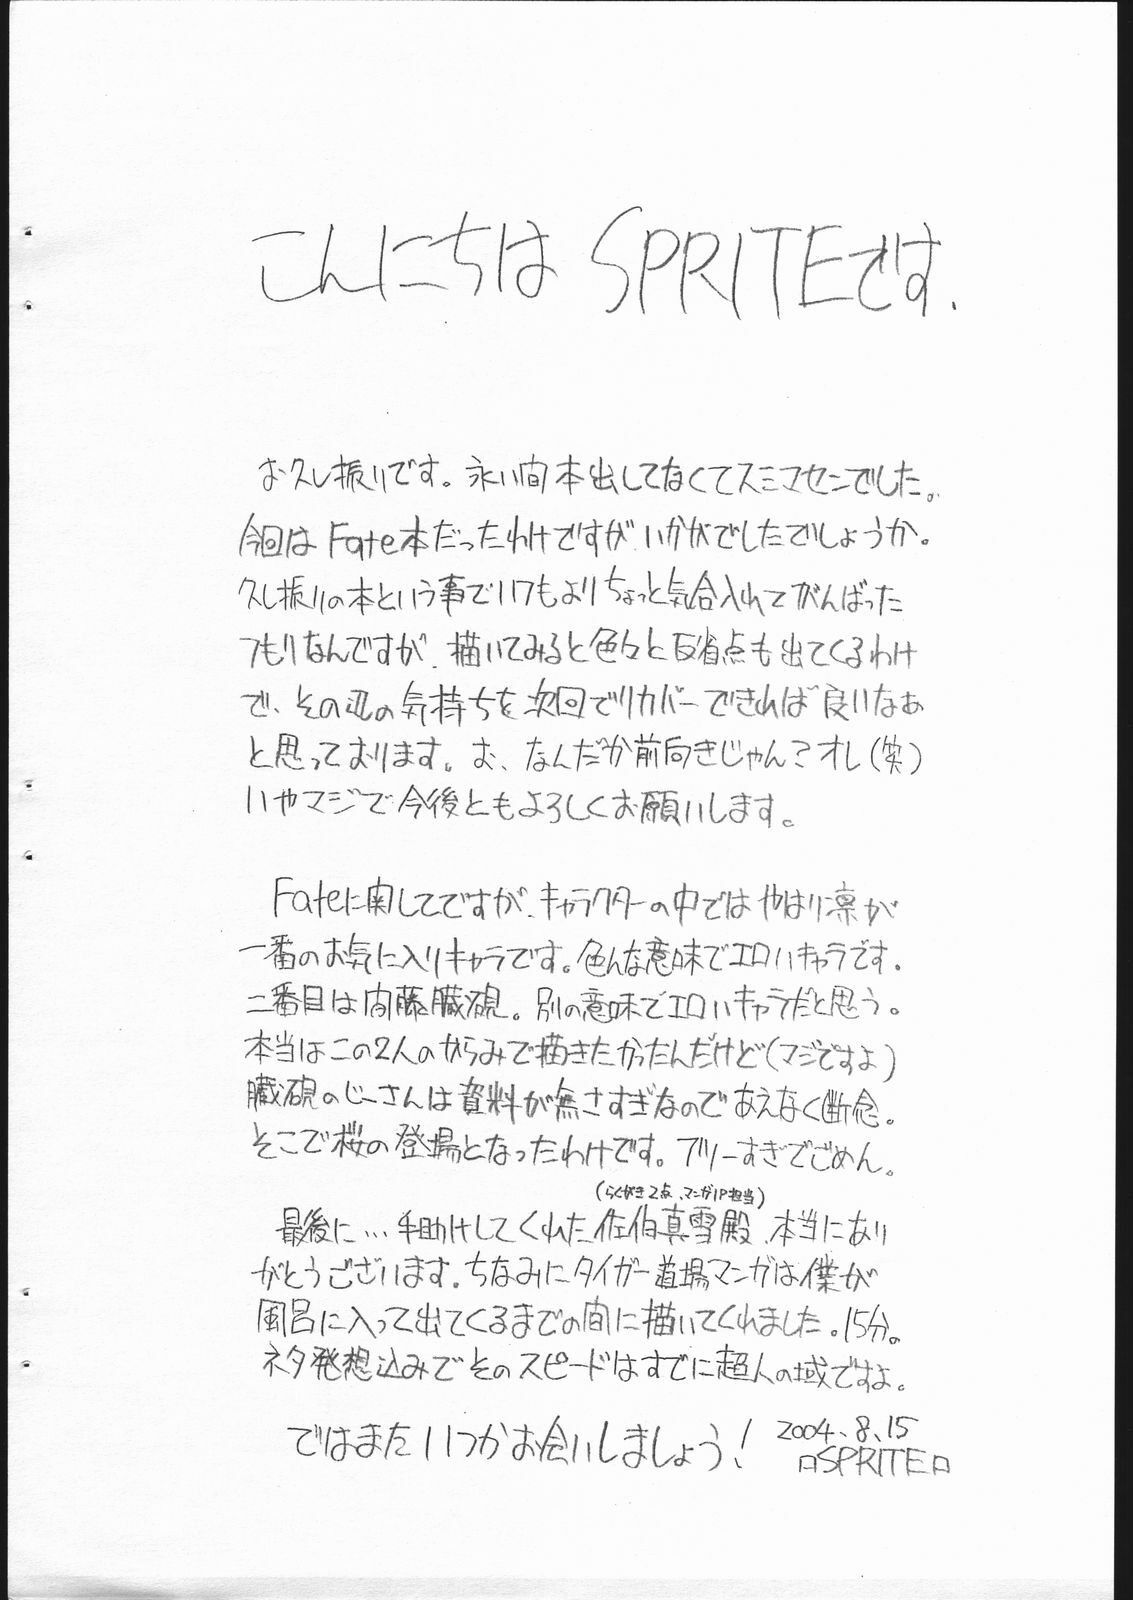 こんにちは SPRITEです.
お久し振りです。永い間本出してなくてスミマセンでした。
今回は Fate本だったわけですが、いかがでしたでしょうか。
久し振りの本という事でいつもよりちょっと気合入れてがんばった
つもりなんですが、描いてみると色々と反省点も出てくるわけ
で、その辺の気持ちを次回でリカバーできれば良いなぁ
と思っております。お、なんだか前向きじゃん?オレ(笑)
いやマジで今後ともよろしくお願いします。
Fateに関してですが、キャラクターの中ではやはり凛が
一番のお気に入りキャラです。色んな意味でエロいキャラです.
二番目は間藤臓硯。別の意味でエロいキャラだと思う。
本当はこの2人のからみで描きたかったんだけど(マジですよ)
臓硯のじーさんは資料が無さすぎなのであえなく断念。
そこで桜の登場となったわけです。フリーすぎでごめん。
(らくがき2点、マンガ1P担当)
最後に…手助けしてくれた佐伯真雪殿、本当にあり
がとうございます。ちなみにタイガー道場マンガは僕が
風呂に入って出てくるまでの間に描いてくれました。15分。
ネタ発想込みでそのスピードはすでに超人の域ですよ。
ではまたいつかお会いしましょう! 2004.8.15
□SPRITE□